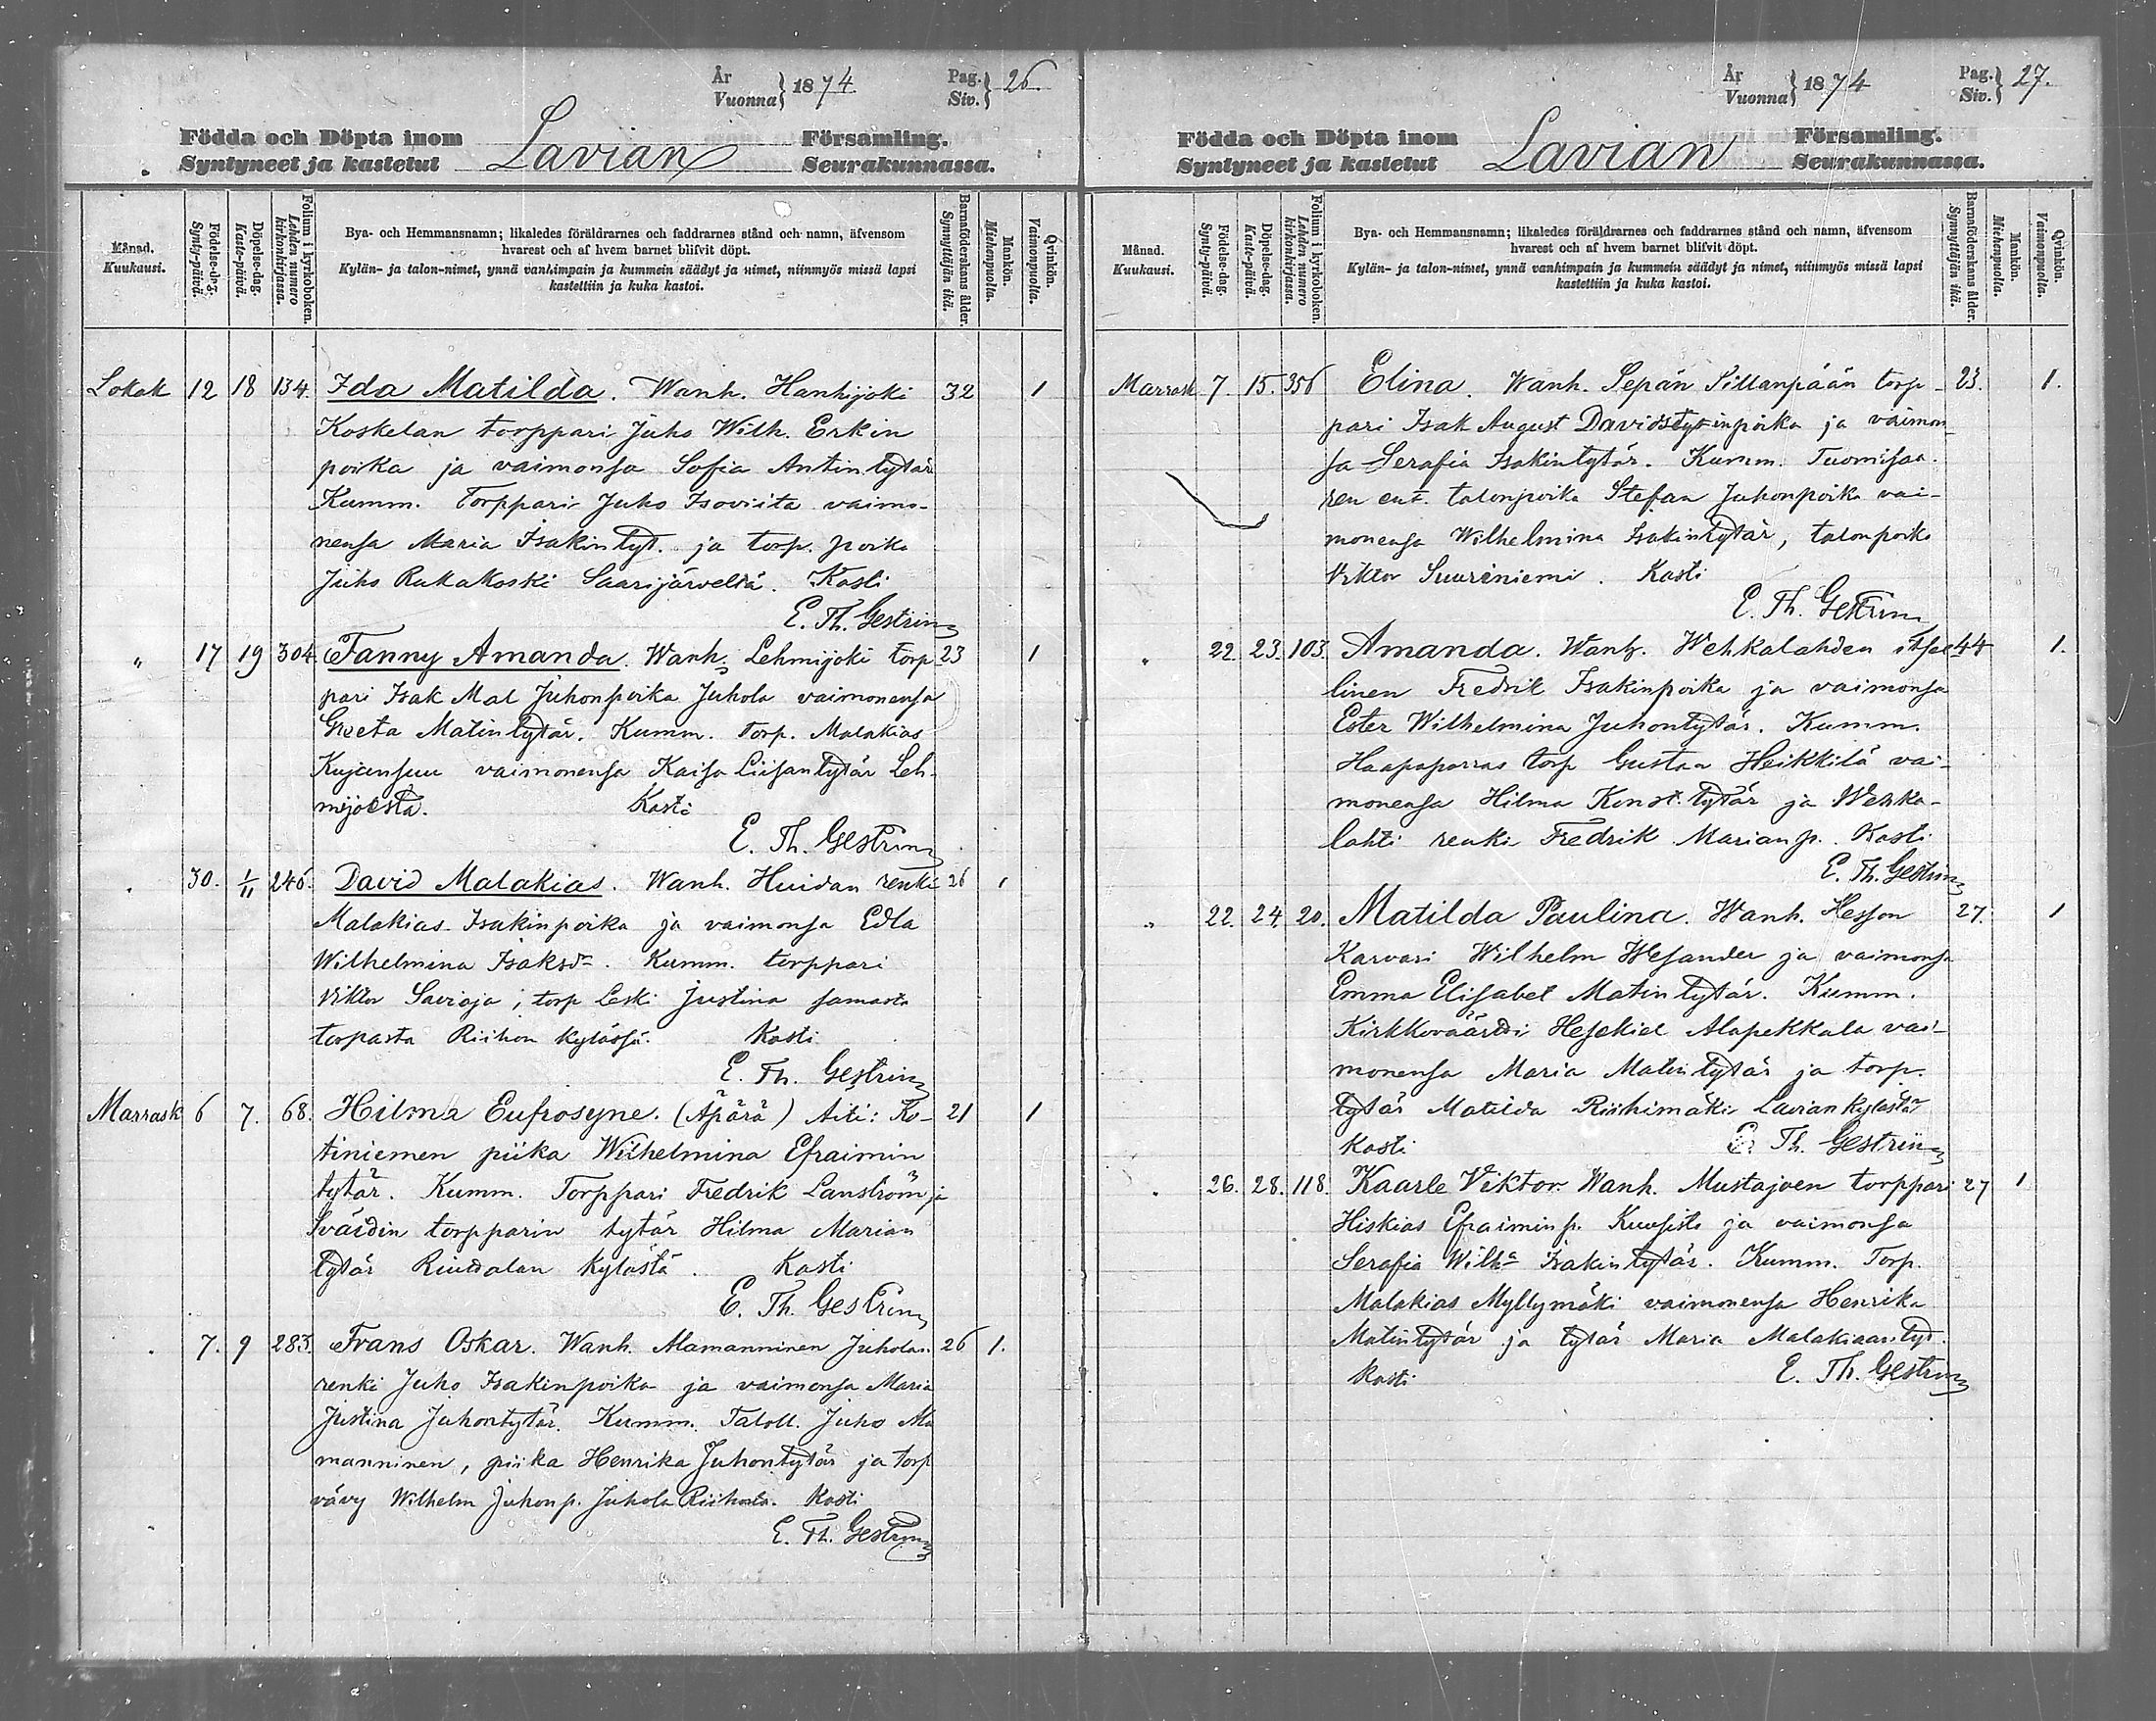 År
Vuonna } 1874. Pag.
Siv. } 26.
Födda och Döpta inom Församling.
Syntyneet ja kastetut Lavian Seurakunnassa.
Månad.
Kuukausi.
Födelse-dag.
Synty-päivä.
Döpelse-dag.
Kaste-päivä.
Folium i kyrkoboken.
Lehden numero kirkonkirjassa.
Bya- och Hemmansnamn; likaledes föräldrarnes och faddrarnes stånd och namn, äfvensom
hvarest och af hvem barnet blifvit döpt.
Kylän- ja talon-nimet, ynnä vanhimpain ja kummein säädyt ja nimet, niinmyös missä lapsi
kastettiin ja kuka kastoi.
Barnaföderskans ålder.
Synnyttäjän ikä.
Mankön.
Miehenpuolia.
Qvinkön.
Vaimonpuolia.
Lokak 12 18 134. Ida Matilda. Wanh. Hanhijoki 32 1
Koskelan torppari Juho Wilh. Erkin
poika ja vaimonsa Sofia Antintytär
Kumm. Torppari Juho Isoviita vaimo-
nensa Maria Isakintyt. ja torp. poika
Juho Rukakoski Saarijärveltä. Kasti
E. Th. Gestrin
" 17 19 304. Fanny Amanda. Wanh. Lehmijoki torp 23 1
pari Isak Mal Juhonpoika Juhola vaimonensa
Greta Matintytär. Kumm. torp. Malakias
Kujansuu vaimonensa Kaisa Liisantytär Leh-
mijoesta. Kasti
E. Th. Gestrin
" 30. 1/11 246. David Malakias. Wanh. Huidan renki 26 1
Malakias Isakinpoika ja vaimonsa Edla
Wilhelmina Isaksdr. Kumm. torppari
Viktor Savioja, torp Leski Justina samasta
torpasta Riihon kylässä. Kasti
E. Th. Gestrin
Marrask 6 7. 68. Hilma Eufrosyne. (Äpärä) Äiti: Ko- 21 1
tiniemen piika Wilhelmina Efraimin
tytär. Kumm. Torppari Fredrik Lanström ja
Svärdin torpparin tytär Hilma Marian
tytär Riudalan kylästä. Kasti
E. Th. Gestrin
" 7. 9 283. Frans Oskar. Wanh. Mamanninen Juholan 26 1.
renki Juho Isakinpoika ja vaimonsa Maria
Justina Juhontytär. Kumm. Taloll. Juho Ma
manninen, piika Henrika Juhontytär ja torp
vävy Wilhelm Juhonp. Juhola Riihosta. Kasti
E. Th. Gestrin
År
Vuonna } 1874 Pag.
Siv. } 27.
Födda och Döpta inom Församling.
Syntyneet ja kastetut Lavian Seurakunnassa.
Månad.
Kuukausi.
Födelse-dag.
Synty-päivä.
Döpelse-dag.
Kaste-päivä.
Folium i kyrkoboken.
Lehden numero kirkonkirjassa.
Bya- och Hemmansnamn; likaledes föräldrarnes och faddrarnes stånd och namn, äfvensom
hvarest och af hvem barnet blifvit döpt.
Kylän- ja talon-nimet, ynnä vanhimpain ja kummein säädyt ja nimet, niinmyös missä lapsi
kastettiin ja kuka kastoi.
Barnaföderskans ålder.
Synnyttäjän ikä.
Mankön.
Miehenpuolia.
Qvinkön.
Vaimonpuolia.
Marrask 7. 15. 356 Elina. Wanh. Sepän Sillanpään torp- 23. 1.
pari Isak August Davidstytinpoika ja vaimon-
sa Serafia Isakintytär. Kumm. Tuomisaa-
ren ent. talonpoika Stefan Juhonpoika vai-
monensa Wilhelmina Isakintytär, talonpoika
Viktor Suuriniemi. Kasti
E. Th. Gestrin
" 22. 23. 103. Amanda. Wanh. Wehkalahden itsel 44 1.
linen Fredrik Isakinpoika ja vaimonsa
Ester Wilhelmina Juhontytär. Kumm.
Haapaparras torp Gustaa Heikkilä vai-
monensa Hilma Konst.tytär ja Wehka-
lahti renki Fredrik Marianp. Kasti
E. Th. Gestrin
" 22. 24. 20. Matilda Paulina. Wanh. Hesson 27. 1
Karvari Wilhelm Wesander ja vaimonsa
Emma Elisabet Matintytär. Kumm.
Kirkkoväärdi Hesekiel Alapekkala vai-
monensa Maria Matintytär ja torp.
tytär Matilda Riihimäki Laviankylästä
Kasti E. Th. Gestrin
" 26. 28. 118 Kaarle Viktor. Wanh. Mustajoen torppari 27 1
Hiskias Efraiminp. Kuusisto ja vaimonsa
Serafia Wilha Isakintytär. Kumm. Torp.
Malakias Myllymäki vaimonensa Henrika
Matintytär ja tytär Maria Malakiaantyt.
Kasti E. Th. Gestrin